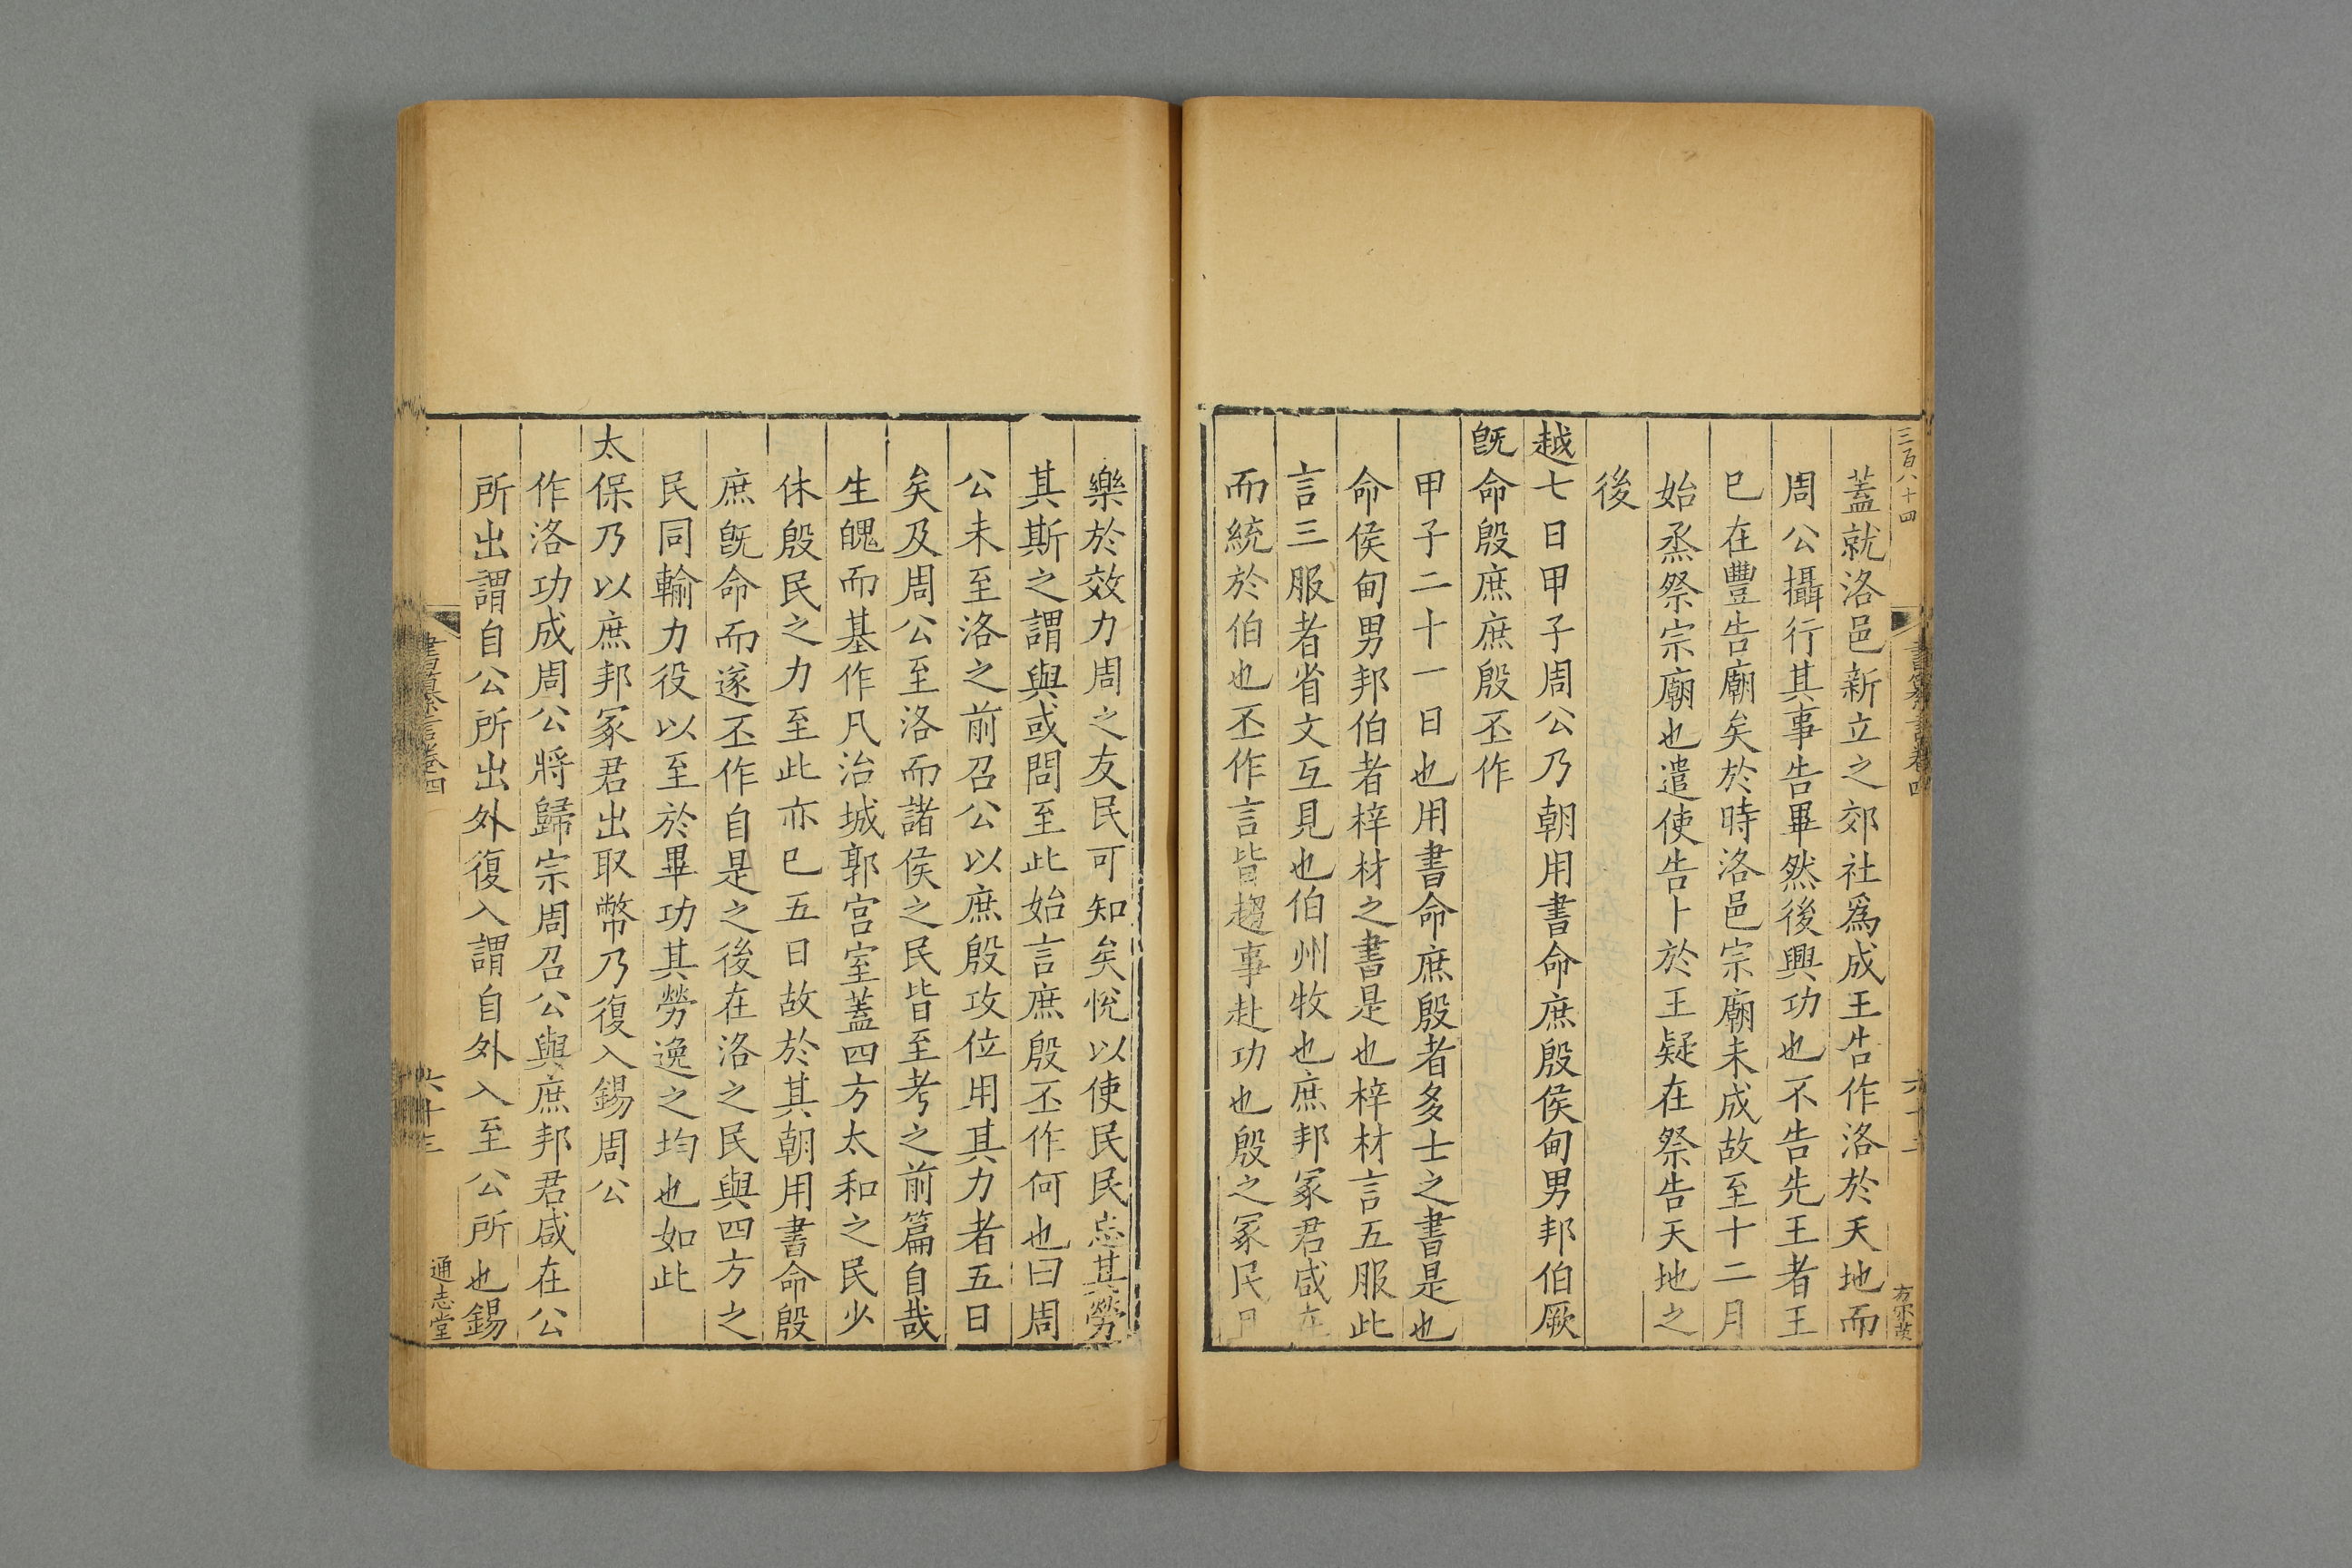 三百八十四
蓋就洛邑新立之郊社爲成王告作洛於天地而
周公攝行其事告畢然後興功也不告先王者王
巳在豐告廟矣於時洛邑宗廟未成故至十二月
始烝祭宗廟也遣使告卜於王疑在祭告天地之
後
越七日甲子周公乃朝用書命庶殷侯甸男邦伯厥
旣命殷庶庶殷丕作
甲子二十一日也用書命庶殷者多士之書是也
命侯甸男邦伯者梓材之書是也梓材言五服此
言三服者省文互見也伯州牧也庶邦冢君咸在
而統於伯也丕作言皆趨事赴功也殷之冢民
樂於效力周之友民可知矣悅以使民民忘其勞
其斯之謂與或問至此始言庶殷丕作何也曰周
公未至洛之前召公以庶殷攻位用其力者五日
矣及周公至洛而諸侯之民皆至考之前篇自哉
生魄而基作凡治城郭宮室蓋四方太和之民少
休殷民之力至此亦巳五日故於其朝用書命殷
庶旣命而遂丕作自是之後在洛之民與四方之
民同輸力役以至於畢功其勞逸之均也如此
太保乃以庶邦冢君出取幣乃復入錫周公
作洛功成周公將歸宗周召公與庶邦君咸在公
所出謂自公所出外復入謂自外入至公所也錫
書纂言卷四
六十三
通志堂